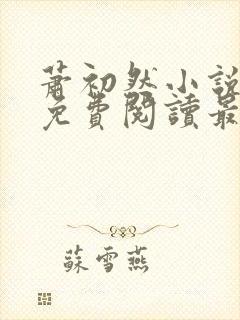 蕭初然小說
免費閱讀最
蘇雪燕